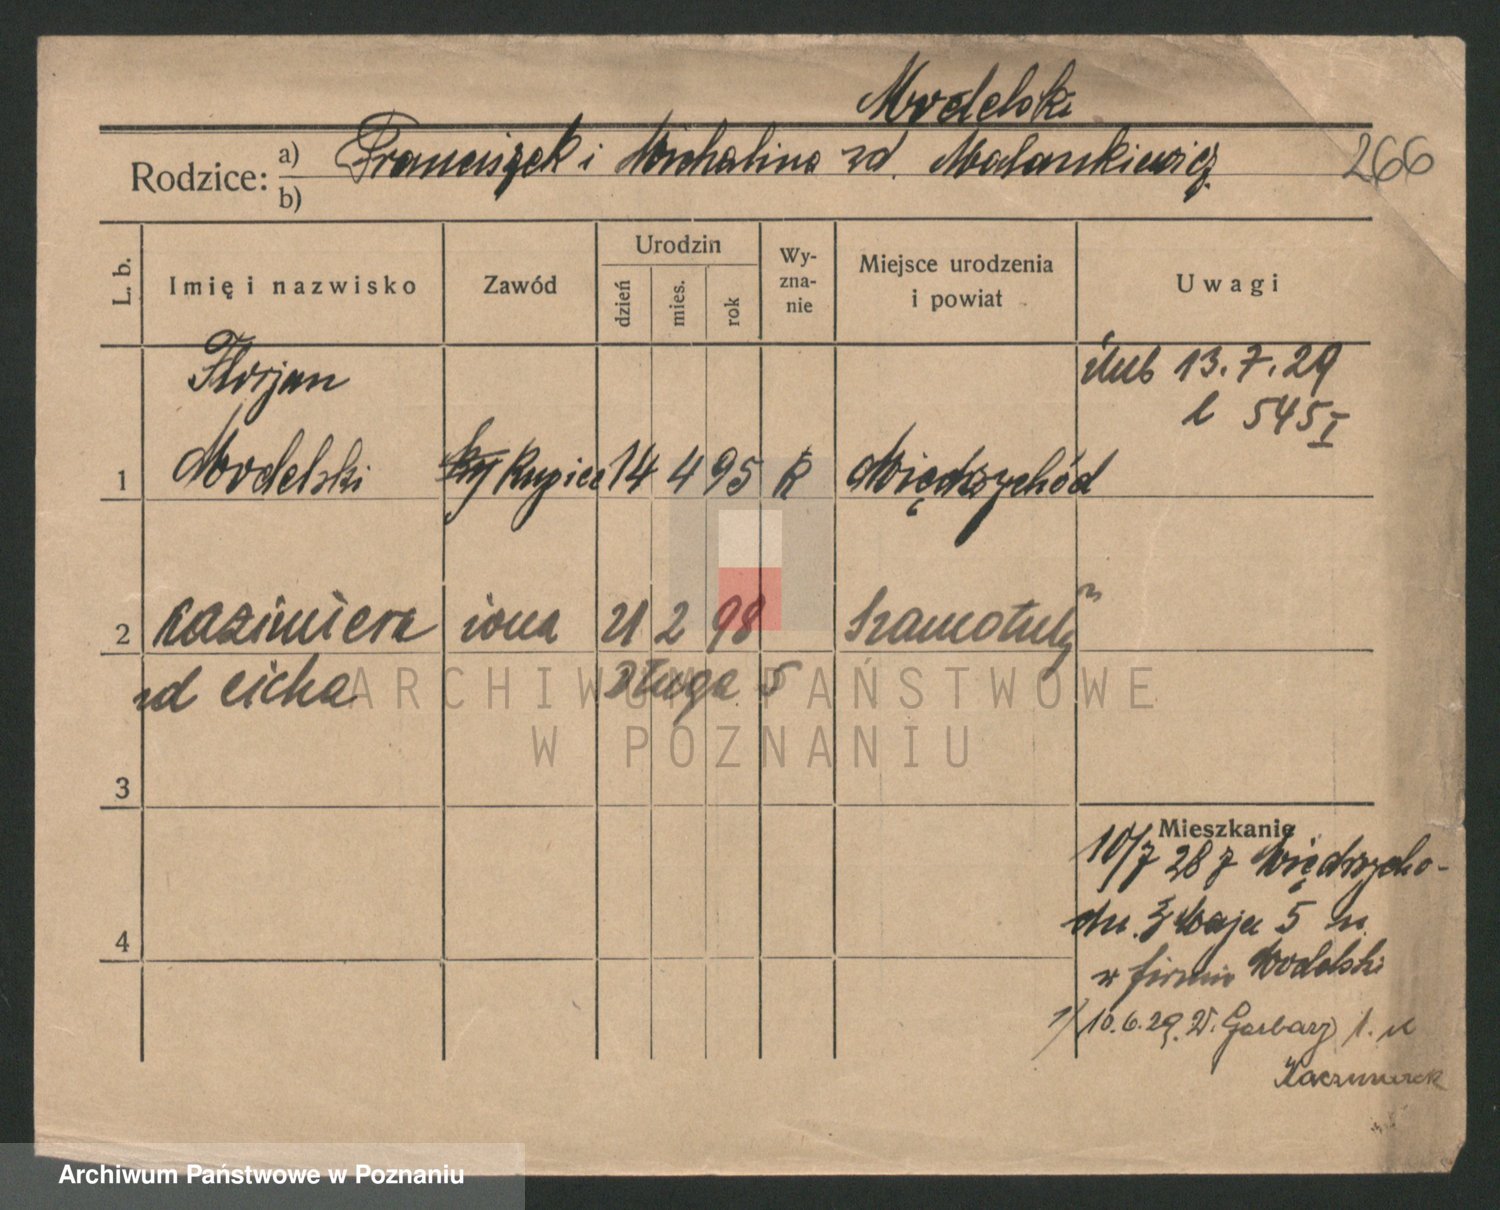 Modelski
Rodzice: a) Franciszek i Michalina zd. Malankiewicz 266
b)
L. b. Imię i nazwisko Zawód Urodzin dzień mies. rok Wy-zna-nie Miejsce urodzenia i powiat Uwagi
Florjan ślub 13.7.29
l 545 I
1 Modelski kupiec 14 4 95 R Międzychód
2 Kazimiera żona 21 2 98 Szamotuły
zd Cicha Długa 5
ARCHIWUM PAŃSTWOWE
W POZNANIU
3
Mieszkanie
10/7 28 z Międzycho-
du. 3 Maja 5 m.
4
w firmie Modelski
1/ 10.6.29. W. Garbary 1. u
Kaczmarek
Archiwum Państwowe w Poznaniu